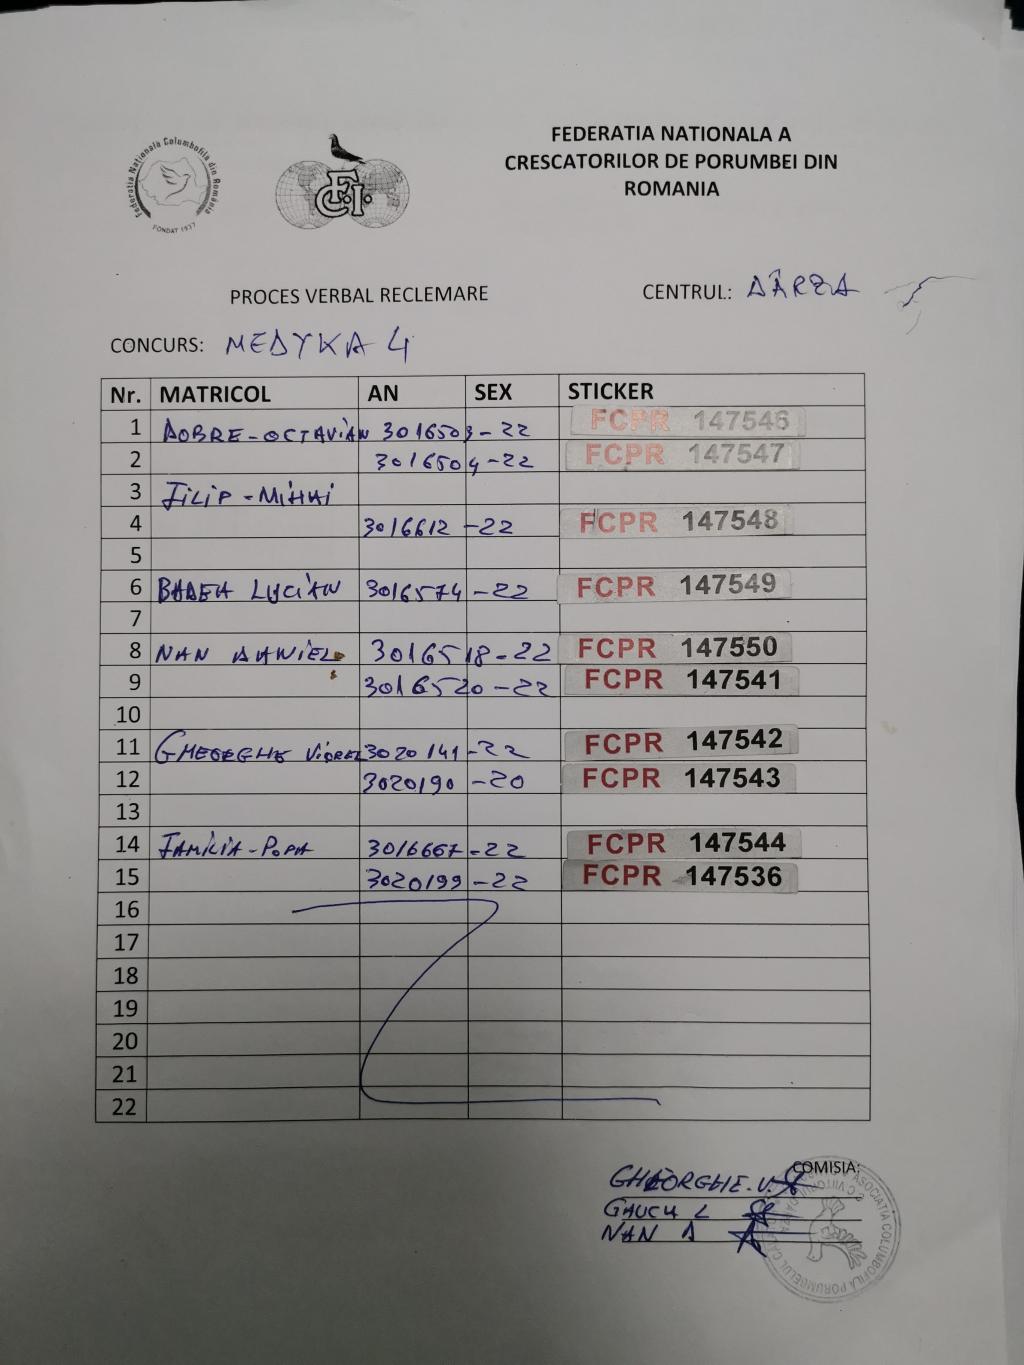 Federatia Nationala Columbofila din România
FONDAT 1937
F.C.I.
FEDERATIA NATIONALA A
CRESCATORILOR DE PORUMBEI DIN
ROMANIA
PROCES VERBAL RECLEMARE
CENTRUL: DÂRZA
CONCURS: MEDYKA 4
Nr. MATRICOL AN SEX STICKER
1 DOBRE-OCTAVIAN 3016503-22 FCPR 147546
2 3016504-22 FCPR 147547
3 FILIP-MIHAI
4 3016612-22 FCPR 147548
5
6 BADEA LUCIAN 3016574-22 FCPR 147549
7
8 NAN DANIEL 3016518-22 FCPR 147550
9 3016520-22 FCPR 147541
10
11 GHEORGHE VIOREL 3020141-22 FCPR 147542
12 3020190-20 FCPR 147543
13
14 FAMILIA-POPA 3016667-22 FCPR 147544
15 3020199-22 FCPR 147536
16
17
18
19
20
21
22
COMISIA:
GHEORGHE.V.
GAUCU L
NAN D
ASOCIATIA COLUMBOFILA PORUMBELUL